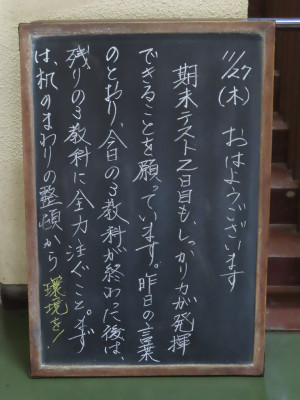 11/27(木) おはようございます
期末テスト2日目も、しっかり力が発揮
できることを願っています。昨日の言葉
のとおり、今日の3教科が終わった後は、
残りの3教科に全力注ぐこと。まず
は、机のまわりの整頓から環境を!